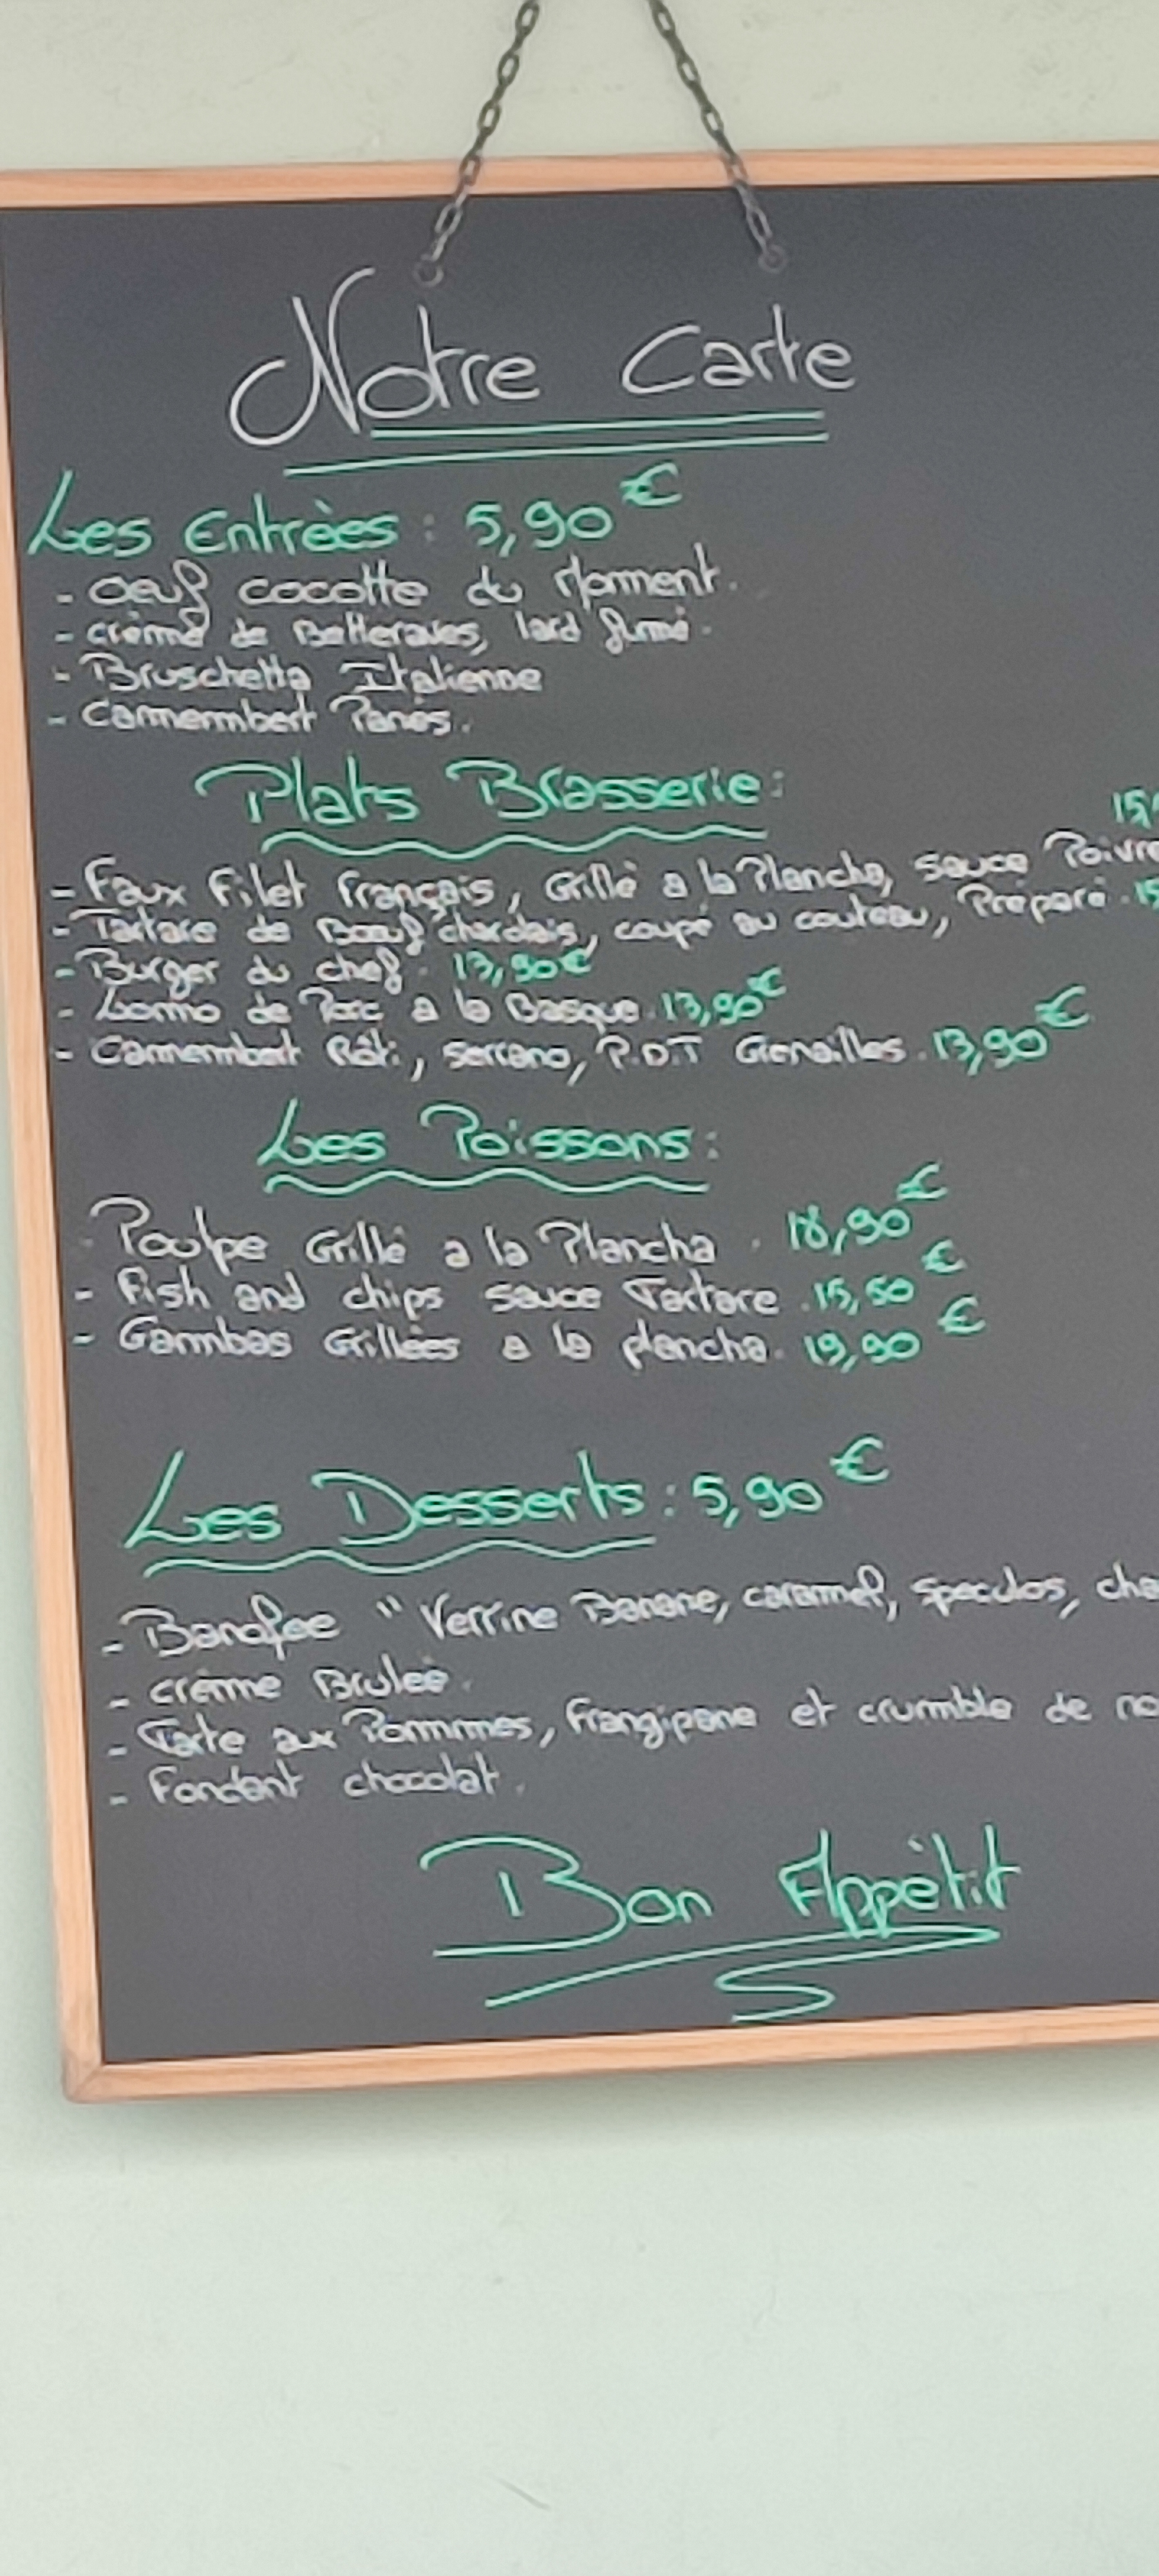 Notre Carte
Les Entrèes : 5,90€
- Oeuf cocotte du Moment.
- crème de Betteraves, lard fumé.
- Bruschetta Italienne
- Camembert Panés.
Plats Brasserie:
- Faux Filet français, Grillé a la Plancha, sauce Poivre
- Tartare de Bœuf charolais, coupé au couteau, Préparé.
- Burger du chef. 13,90€
- Lomo de Porc a la Basque. 13,90€
- Camembert Rôti, serrano, P.D.T Grenailles. 13,90€
Les Poissons:
- Poulpe Grillé a la Plancha. 18,90€
- Fish and chips sauce Tartare. 15,50€
- Gambas Grillées a la plancha. 19,90€
Les Desserts: 5,90€
- Banofee " Verrine Banane, caramel, speculos,
- crème Brulee.
- Tarte aux Pommes, frangipane et crumble de
- Fondant chocolat.
Bon Appétit